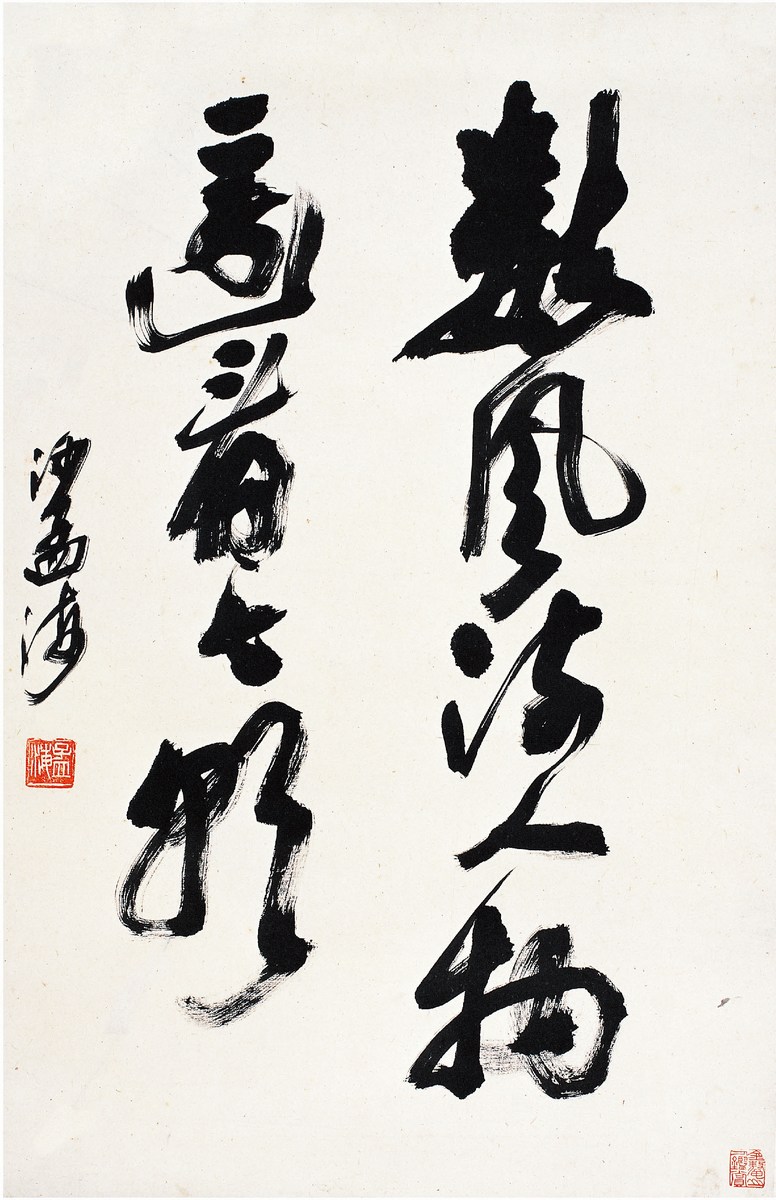 數風流人物
還看今朝
沙孟海
孟海